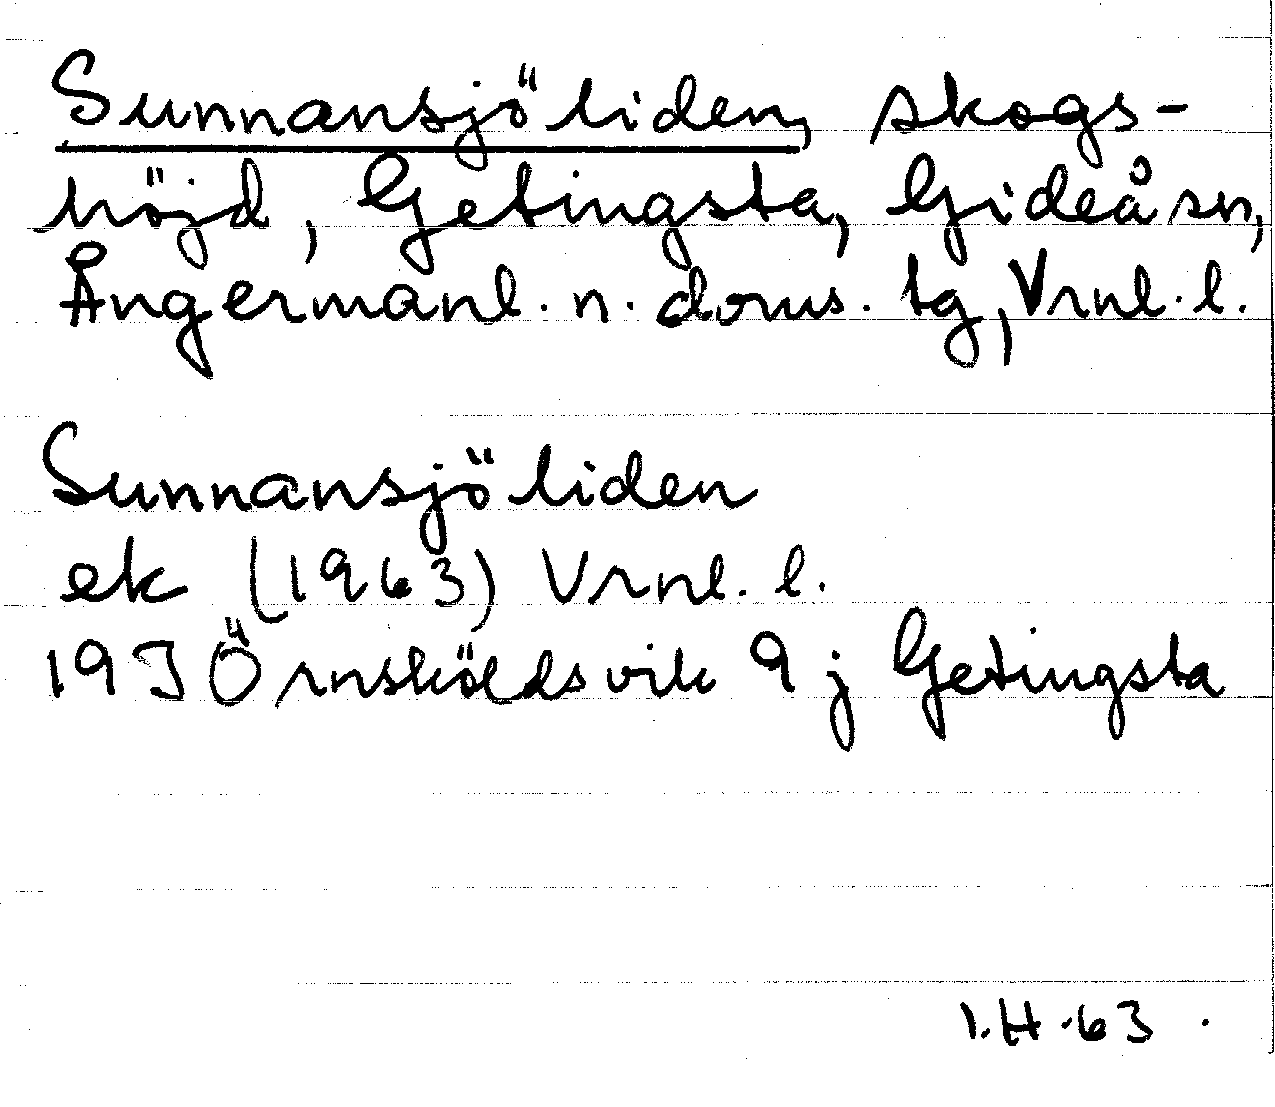 Sunnansjöliden, skogs-
höjd, Getingsta, Gideå sn,
Ångermanl. n. doms. tg, Vrnl. l.
Sunnansjöliden
ek (1963) Vrnl. l.
19J Örnsköldsvik 9 j Getingsta
I.H. 63.